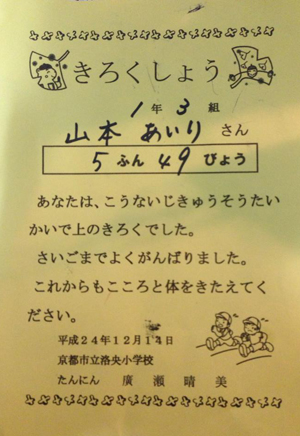 きろくしょう
1年3組
山本 あいり さん
5 ふん 49 びょう
あなたは、こうないじきゅうそうたい
かいで上のきろくでした。
さいごまでよくがんばりました。
これからもこころと体をきたえてく
ださい。
平成24年12月14日
京都市立洛央小学校
たんにん 廣瀬晴美